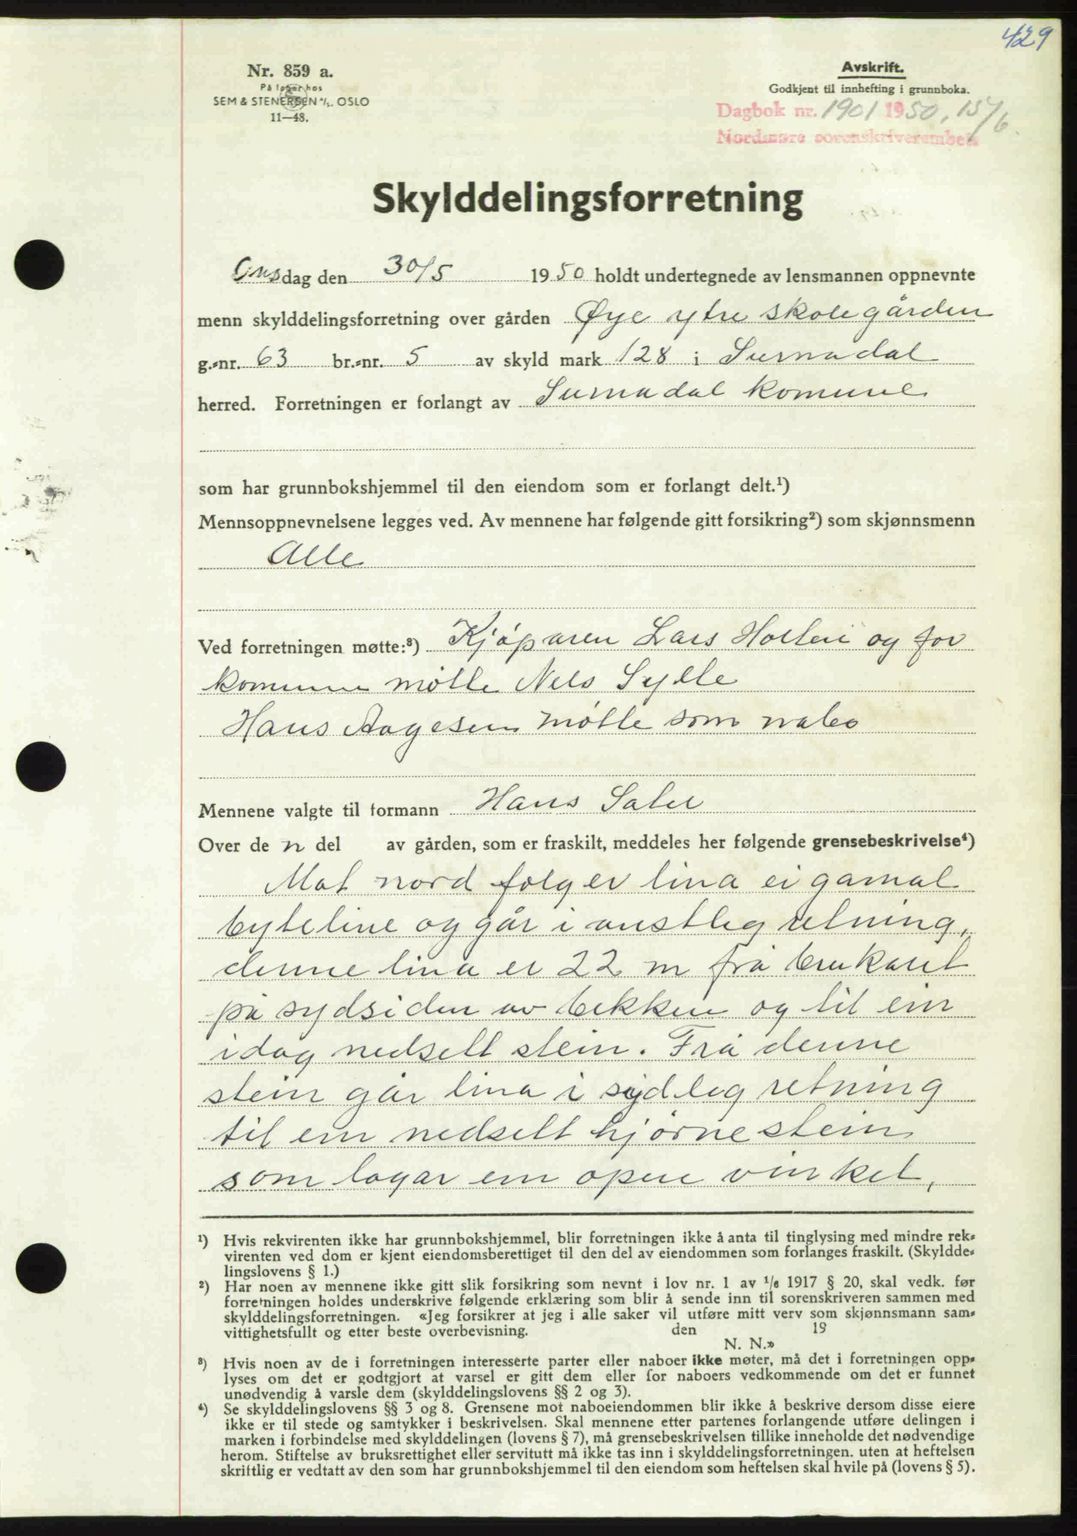 429
Nr. 859 a.
På lager hos
SEM & STENERSEN A/S. OSLO
11—48.
Avskrift.
Godkjent til innhefting i grunnboka.
Dagbok nr. 1901 1950, 15/6.
Nordmøre sorenskriverembete
Skylddelingsforretning
Onsdag den 30/5 1950 holdt undertegnede av lensmannen oppnevnte
menn skylddelingsforretning over gården Øye ytre skolegården
g.-nr. 63 br.-nr. 5 av skyld mark 128 i Surnadal
herred. Forretningen er forlangt av Surnadal komune
som har grunnbokshjemmel til den eiendom som er forlangt delt.¹)
Mennsoppnevnelsene legges ved. Av mennene har følgende gitt forsikring²) som skjønnsmenn
Alle
Ved forretningen møtte:³) Kjøparen Lars Holten og for
komune møtte Nils Sylte
Hans Aagesen møtte som nabo
Mennene valgte til formann Hans Sæter
Over de n del av gården, som er fraskilt, meddeles her følgende grensebeskrivelse⁴)
Mot nord følger lina ei gamal
byteline og går i austleg retning,
denne lina er 22 m frå brukaret
på sydsiden av bekken og til ein
idag nedsett stein. Frå denne
stein går lina i sydleg retning
til ein nedsett hjørnestein
som lagar ein open vinkel,
¹) Hvis rekvirenten ikke har grunnbokshjemmel, blir forretningen ikke å anta til tinglysing med mindre rek-
virenten ved dom er kjent eiendomsberettiget til den del av eiendommen som forlanges fraskilt. (Skyldde-
lingslovens § 1.)
²) Har noen av mennene ikke gitt slik forsikring som nevnt i lov nr. 1 av 1/6 1917 § 20, skal vedk. før
forretningen holdes underskrive følgende erklæring som blir å sende inn til sorenskriveren sammen med
skylddelingsforretningen. «Jeg forsikrer at jeg i alle saker vil utføre mitt verv som skjønnsmann sam-
vittighetsfullt og etter beste overbevisning. den 19
N. N.»
³) Hvis noen av de i forretningen interesserte parter eller naboer ikke møter, må det i forretningen opp-
lyses om det er godtgjort at varsel er gitt dem eller for naboers vedkommende om det er funnet
unødvendig å varsle dem (skylddelingslovens §§ 2 og 3).
⁴) Se skylddelingslovens §§ 3 og 8. Grensene mot naboeiendommen blir ikke å beskrive dersom disse eiere
ikke er til stede og samtykker i beskrivelsen. Skal mennene etter partenes forlangende utføre delingen i
marken i forbindelse med skylddelingen (lovens § 7), må grensebeskrivelsen tillike inneholde det nødvendige
herom. Stiftelse av bruksrettighet eller servitutt må ikke tas inn i skylddelingsforretningen. uten at heftelsen
skriftlig er vedtatt av den som har grunnbokshjemmel til den eiendom som heftelsen skal hvile på (lovens § 5).